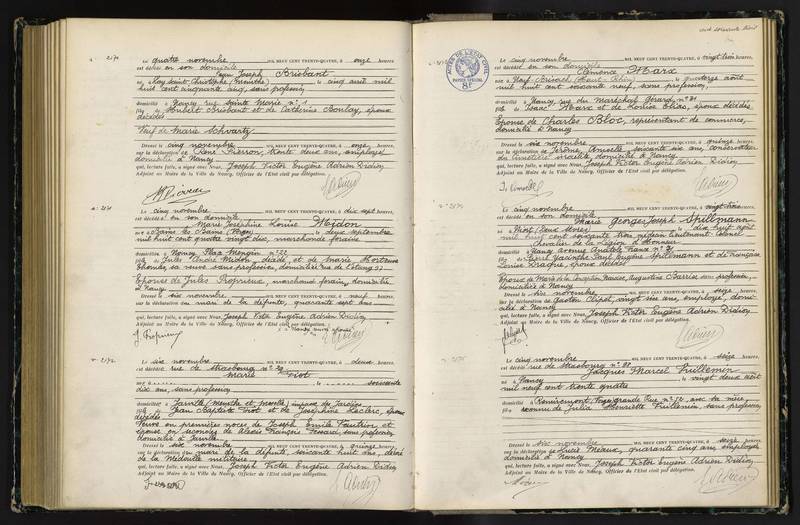 2170
Le quatre novembre MIL NEUF CENT TRENTE-QUATRE, à onze heures,
est décédé en son domicile
Joseph Briobant
né à Roy Saint Christophe (Meurthe) le cinq août mil
huit cent cinquante cinq, sans profession,
domicilié à Nancy rue Sainte Marie n° 1
fils de Hubert Briobant et de Catherine Boulay, époux
décédés
Veuf de Marie Schvartz
Dressé le cinq novembre MIL NEUF CENT TRENTE-QUATRE, à onze heures,
sur la déclaration de René Pierron, trente deux ans, employé
domicilié à Nancy
qui, lecture faite, a signé avec Nous, Joseph Victor Eugène Adrien Didion
Adjoint au Maire de la Ville de Nancy, Officier de l'Etat civil par délégation.
2171
Le cinq novembre MIL NEUF CENT TRENTE-QUATRE, à dix sept heures,
est décédée en son domicile
Marie Joséphine Louise Midon
née à Bains les Bains (Vosges) le deux septembre
mil huit cent quatre vingt dix, marchande foraine
domiciliée à Nancy Place Mengin n° 22
fille de Jules Marie Midon, décédé, et de Marie Hortense
sa veuve sans profession, domiciliée rue de
Epouse de Jules marchand forain, domicilié
à Nancy
Dressé le six novembre MIL NEUF CENT TRENTE-QUATRE, à neuf heures,
sur la déclaration du mari de la défunte, quarante sept ans
qui, lecture faite, a signé avec Nous, Joseph Victor Eugène Adrien Didion
Adjoint au Maire de la Ville de Nancy, Officier de l'Etat civil par délégation.
2172
Le six novembre MIL NEUF CENT TRENTE-QUATRE, à deux heures,
est décédée rue de Strasbourg n° 29
Marie Viot
née à le soixante
dix ans, sans profession
domiciliée à Jarville (Meurthe et Moselle) impasse des Jardins
fille de Jean Baptiste Viot et de Joséphine Leclerc, époux
décédés
Veuve en premières noces de Joseph Emile Fautrion et
épouse en secondes de Alexis François Fessard, sans profession,
domicilié à Jarville
Dressé le six novembre MIL NEUF CENT TRENTE-QUATRE, à quinze heures,
sur la déclaration du mari de la défunte, soixante huit ans, décoré
de la Médaille militaire
qui, lecture faite, a signé avec Nous, Joseph Victor Eugène Adrien Didion
Adjoint au Maire de la Ville de Nancy, Officier de l'Etat civil par délégation.
ACTES DE L'ÉTAT CIVIL
PAPIER SPÉCIAL
8F
Le cinq novembre MIL NEUF CENT TRENTE-QUATRE, à vingt trois heures,
est décédée en son domicile
Clémence Marx
née à Neuf-Brisach (Haut-Rhin) le quatorze août
mil huit cent soixante neuf, sans profession,
domiciliée à Nancy, rue du Maréchal Gérard n° 31
fille de Isaac Marx et de Louise Eliac, époux décédés
Epouse de Charles Bloc, représentant de commerce,
domicilié à Nancy
Dressé le six novembre MIL NEUF CENT TRENTE-QUATRE, à quinze heures,
sur la déclaration de Jérôme soixante six ans, conservateur
du cimetière israélite, domicilié à Nancy
qui, lecture faite, a signé avec Nous, Joseph Victor Eugène Adrien Didion
Adjoint au Maire de la Ville de Nancy, Officier de l'Etat civil par délégation.
Le cinq novembre MIL NEUF CENT TRENTE-QUATRE, à vingt trois heures,
est décédé en son domicile
Marie Georges Joseph Spillmann
né à Niort (Deux Sèvres) le dix huit août
mil huit cent soixante trois médecin lieutenant colonel
Chevalier de la Légion d'Honneur
domicilié à Nancy avenue Anatole France n°
fils de Pierre Hyacinthe Paul Eugène Spillmann et de Françoise
Louise époux décédés
Epoux de Marie de la Conception Augustina Barrios sans profession,
domiciliée à Nancy
Dressé le six novembre MIL NEUF CENT TRENTE-QUATRE, à seize heures,
sur la déclaration de Gaston Clipet, vingt six ans, employé, domi-
cilié à Nancy
qui, lecture faite, a signé avec Nous, Joseph Victor Eugène Adrien Didion
Adjoint au Maire de la Ville de Nancy, Officier de l'Etat civil par délégation.
Le cinq novembre MIL NEUF CENT TRENTE-QUATRE, à seize heures,
est décédé rue de Strasbourg n° 80
Jacques Marcel Vuillemin
né à Nancy le vingt deux août
mil neuf cent trente quatre
domicilié à Remiremont, Vosges Grande Rue n° 72, avec sa mère,
fils reconnu de Julia Henriette Vuillemin sans profession,
Dressé le six novembre MIL NEUF CENT TRENTE-QUATRE, à seize heures,
sur la déclaration de Lucie Meaux, quarante cinq ans employée
domiciliée à Nancy
qui, lecture faite, a signé avec Nous, Joseph Victor Eugène Adrien Didion
Adjoint au Maire de la Ville de Nancy, Officier de l'Etat civil par délégation.